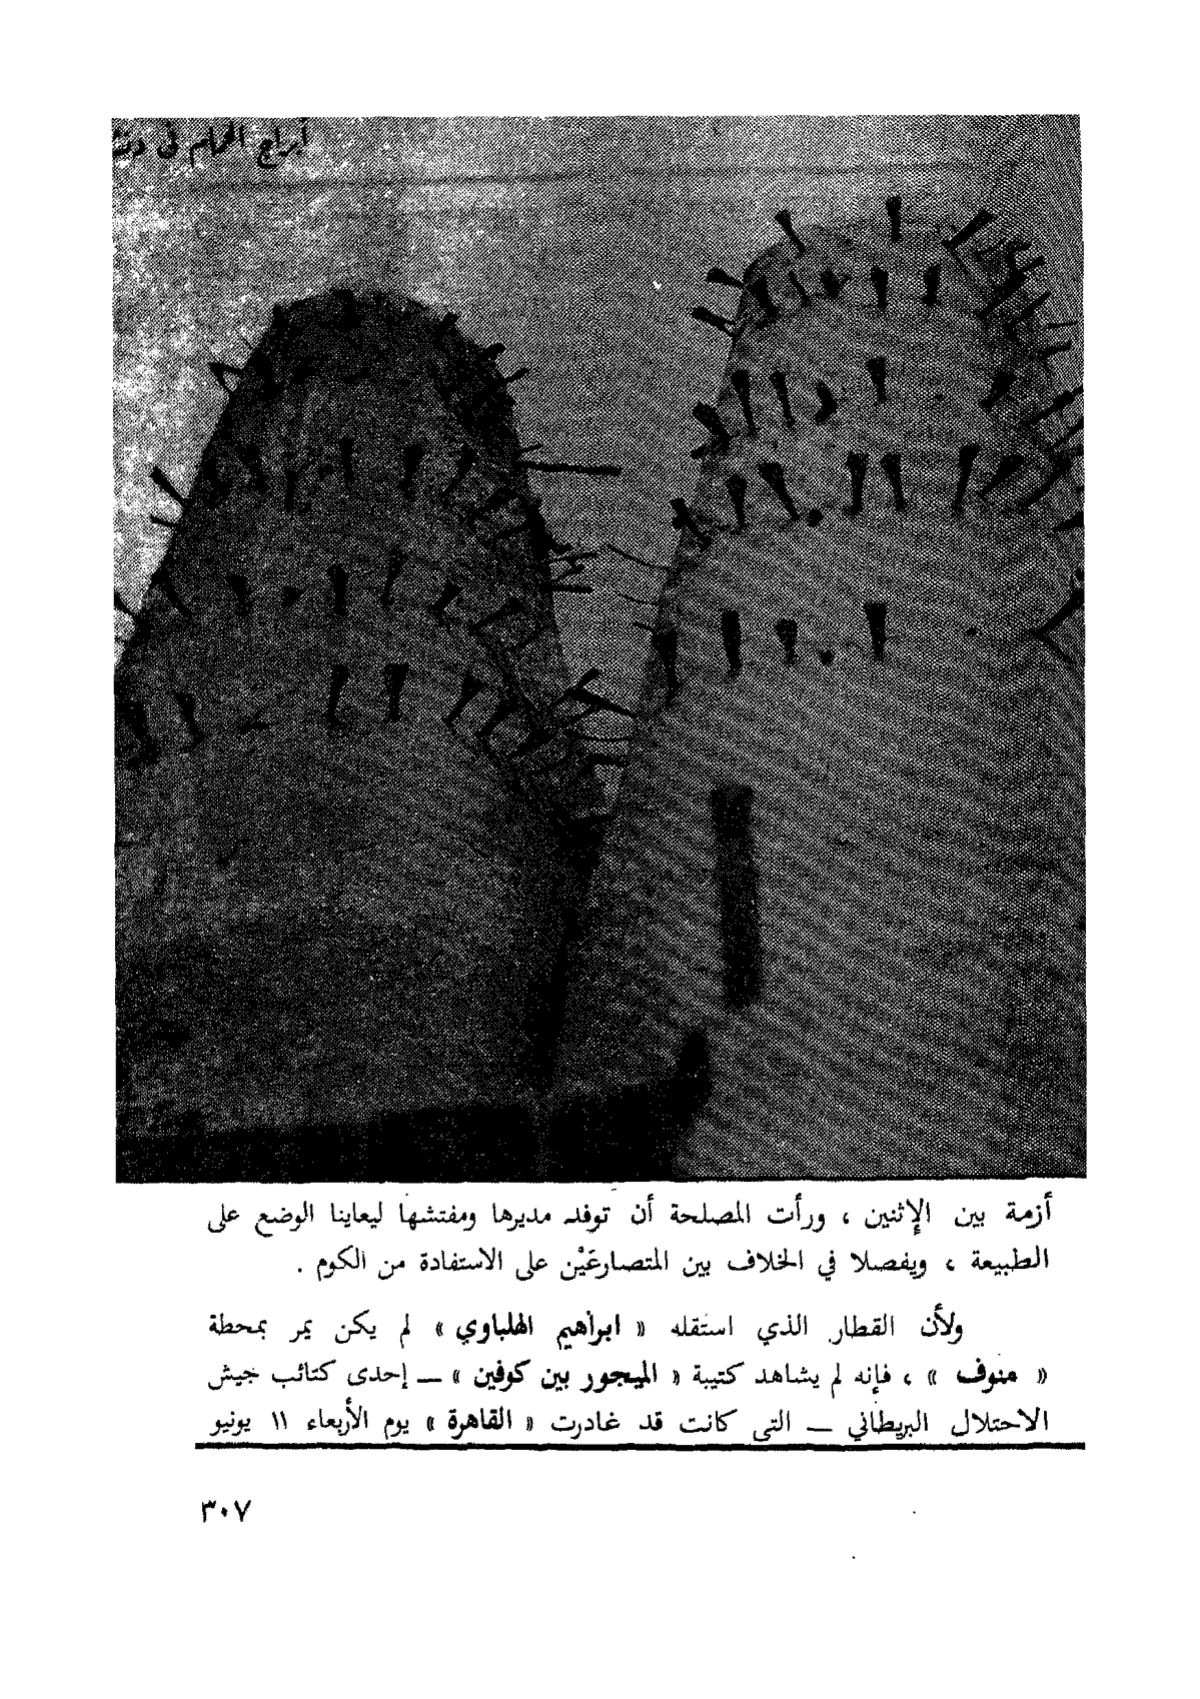 أبراج الحمام في
أزمة بين الإثنين ، ورأت المصلحة أن توفد مديرها ومفتشها ليعاينا الوضع على
الطبيعة ، ويفصلا في الخلاف بين المتصارعَيْن على الاستفادة من الكوم .
ولأن القطار الذي استقله « ابراهيم الهلباوي » لم يكن يمر بمحطة
« منوف » ، فإنه لم يشاهد كتيبة « الميجور بين كوفين » — إحدى كتائب جيش
الاحتلال البريطاني — التى كانت قد غادرت « القاهرة » يوم الأربعاء ١١ يونيو
٣٠٧